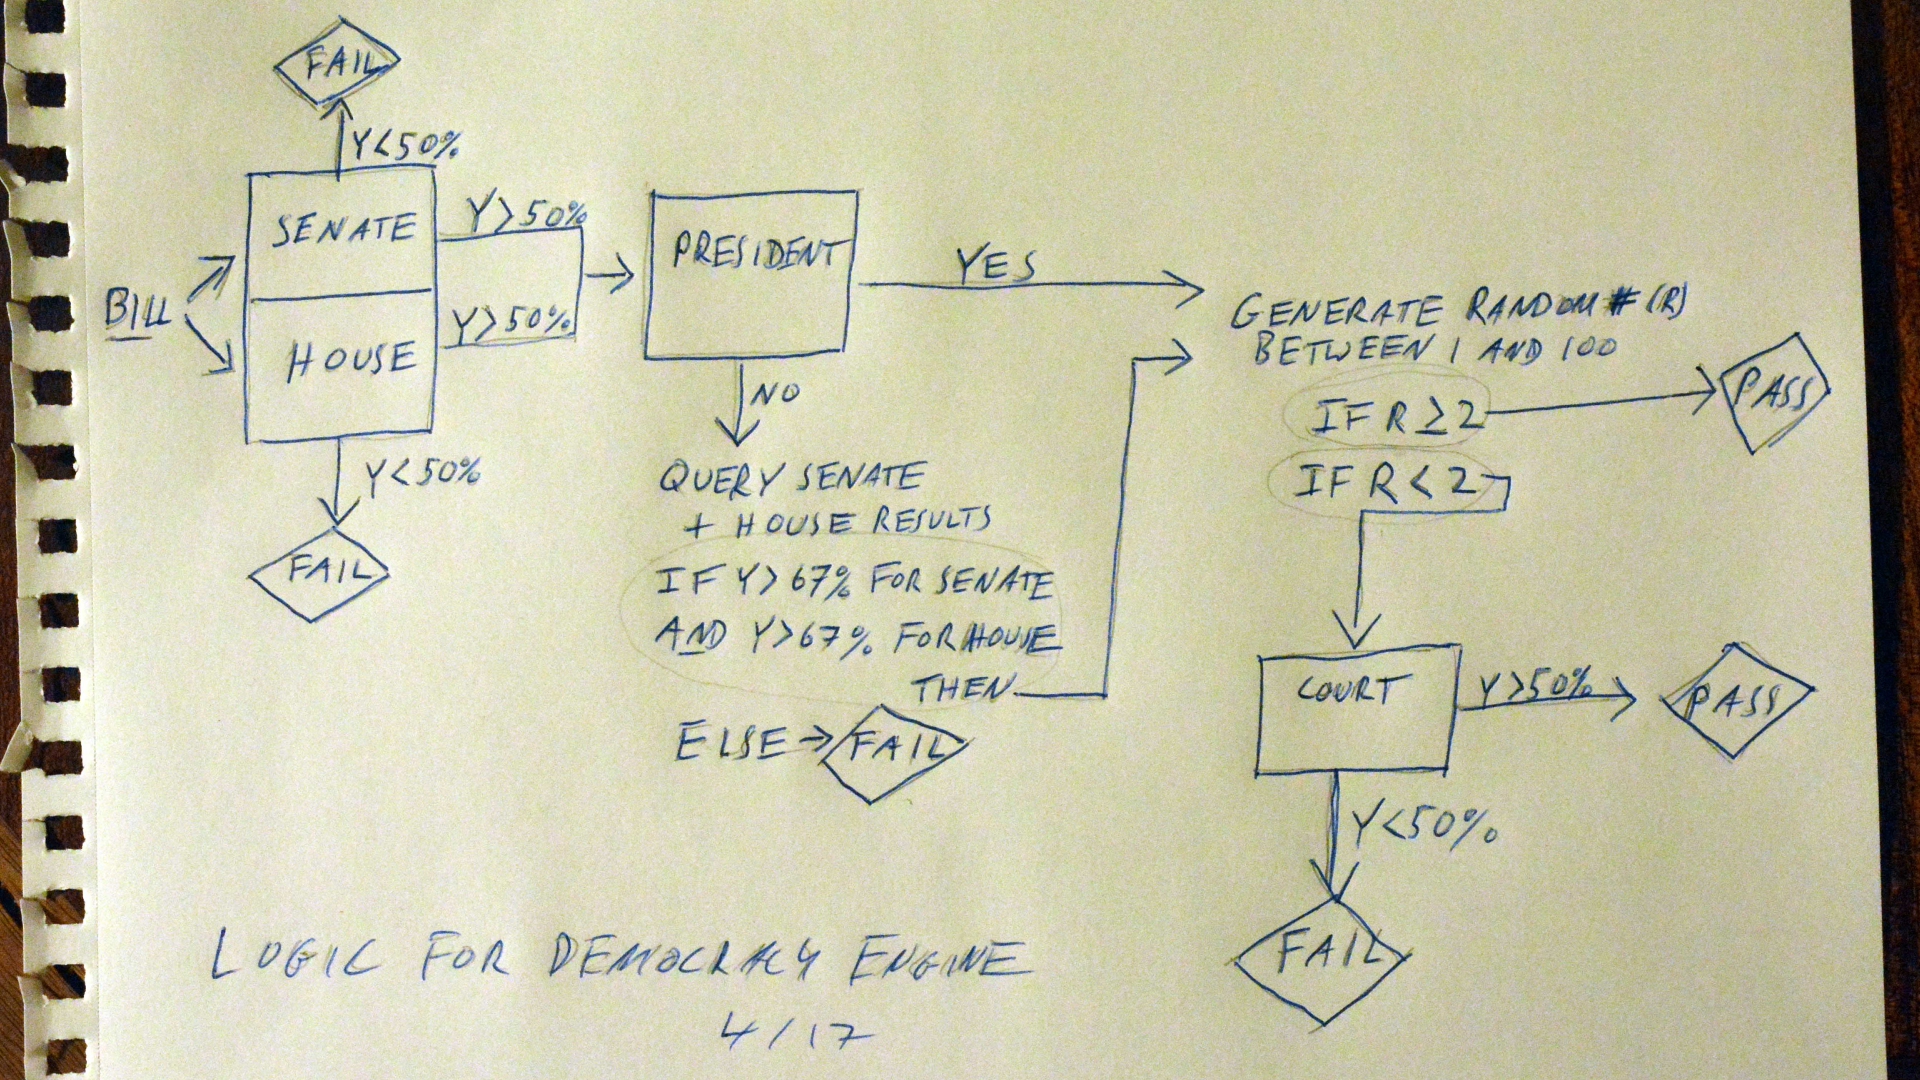 FAIL
Y<50%
SENATE
Y>50%
BILL
HOUSE
Y>50%
Y<50%
FAIL
PRESIDENT
YES
NO
QUERY SENATE
+ HOUSE RESULTS
IF Y>67% FOR SENATE
AND Y>67% FOR HOUSE
THEN
ELSE → FAIL
GENERATE RANDOM # (R)
BETWEEN 1 AND 100
IF R ≥ 2
PASS
IF R < 2
COURT
Y>50%
PASS
Y<50%
FAIL
LOGIC FOR DEMOCRACY ENGINE
4/17